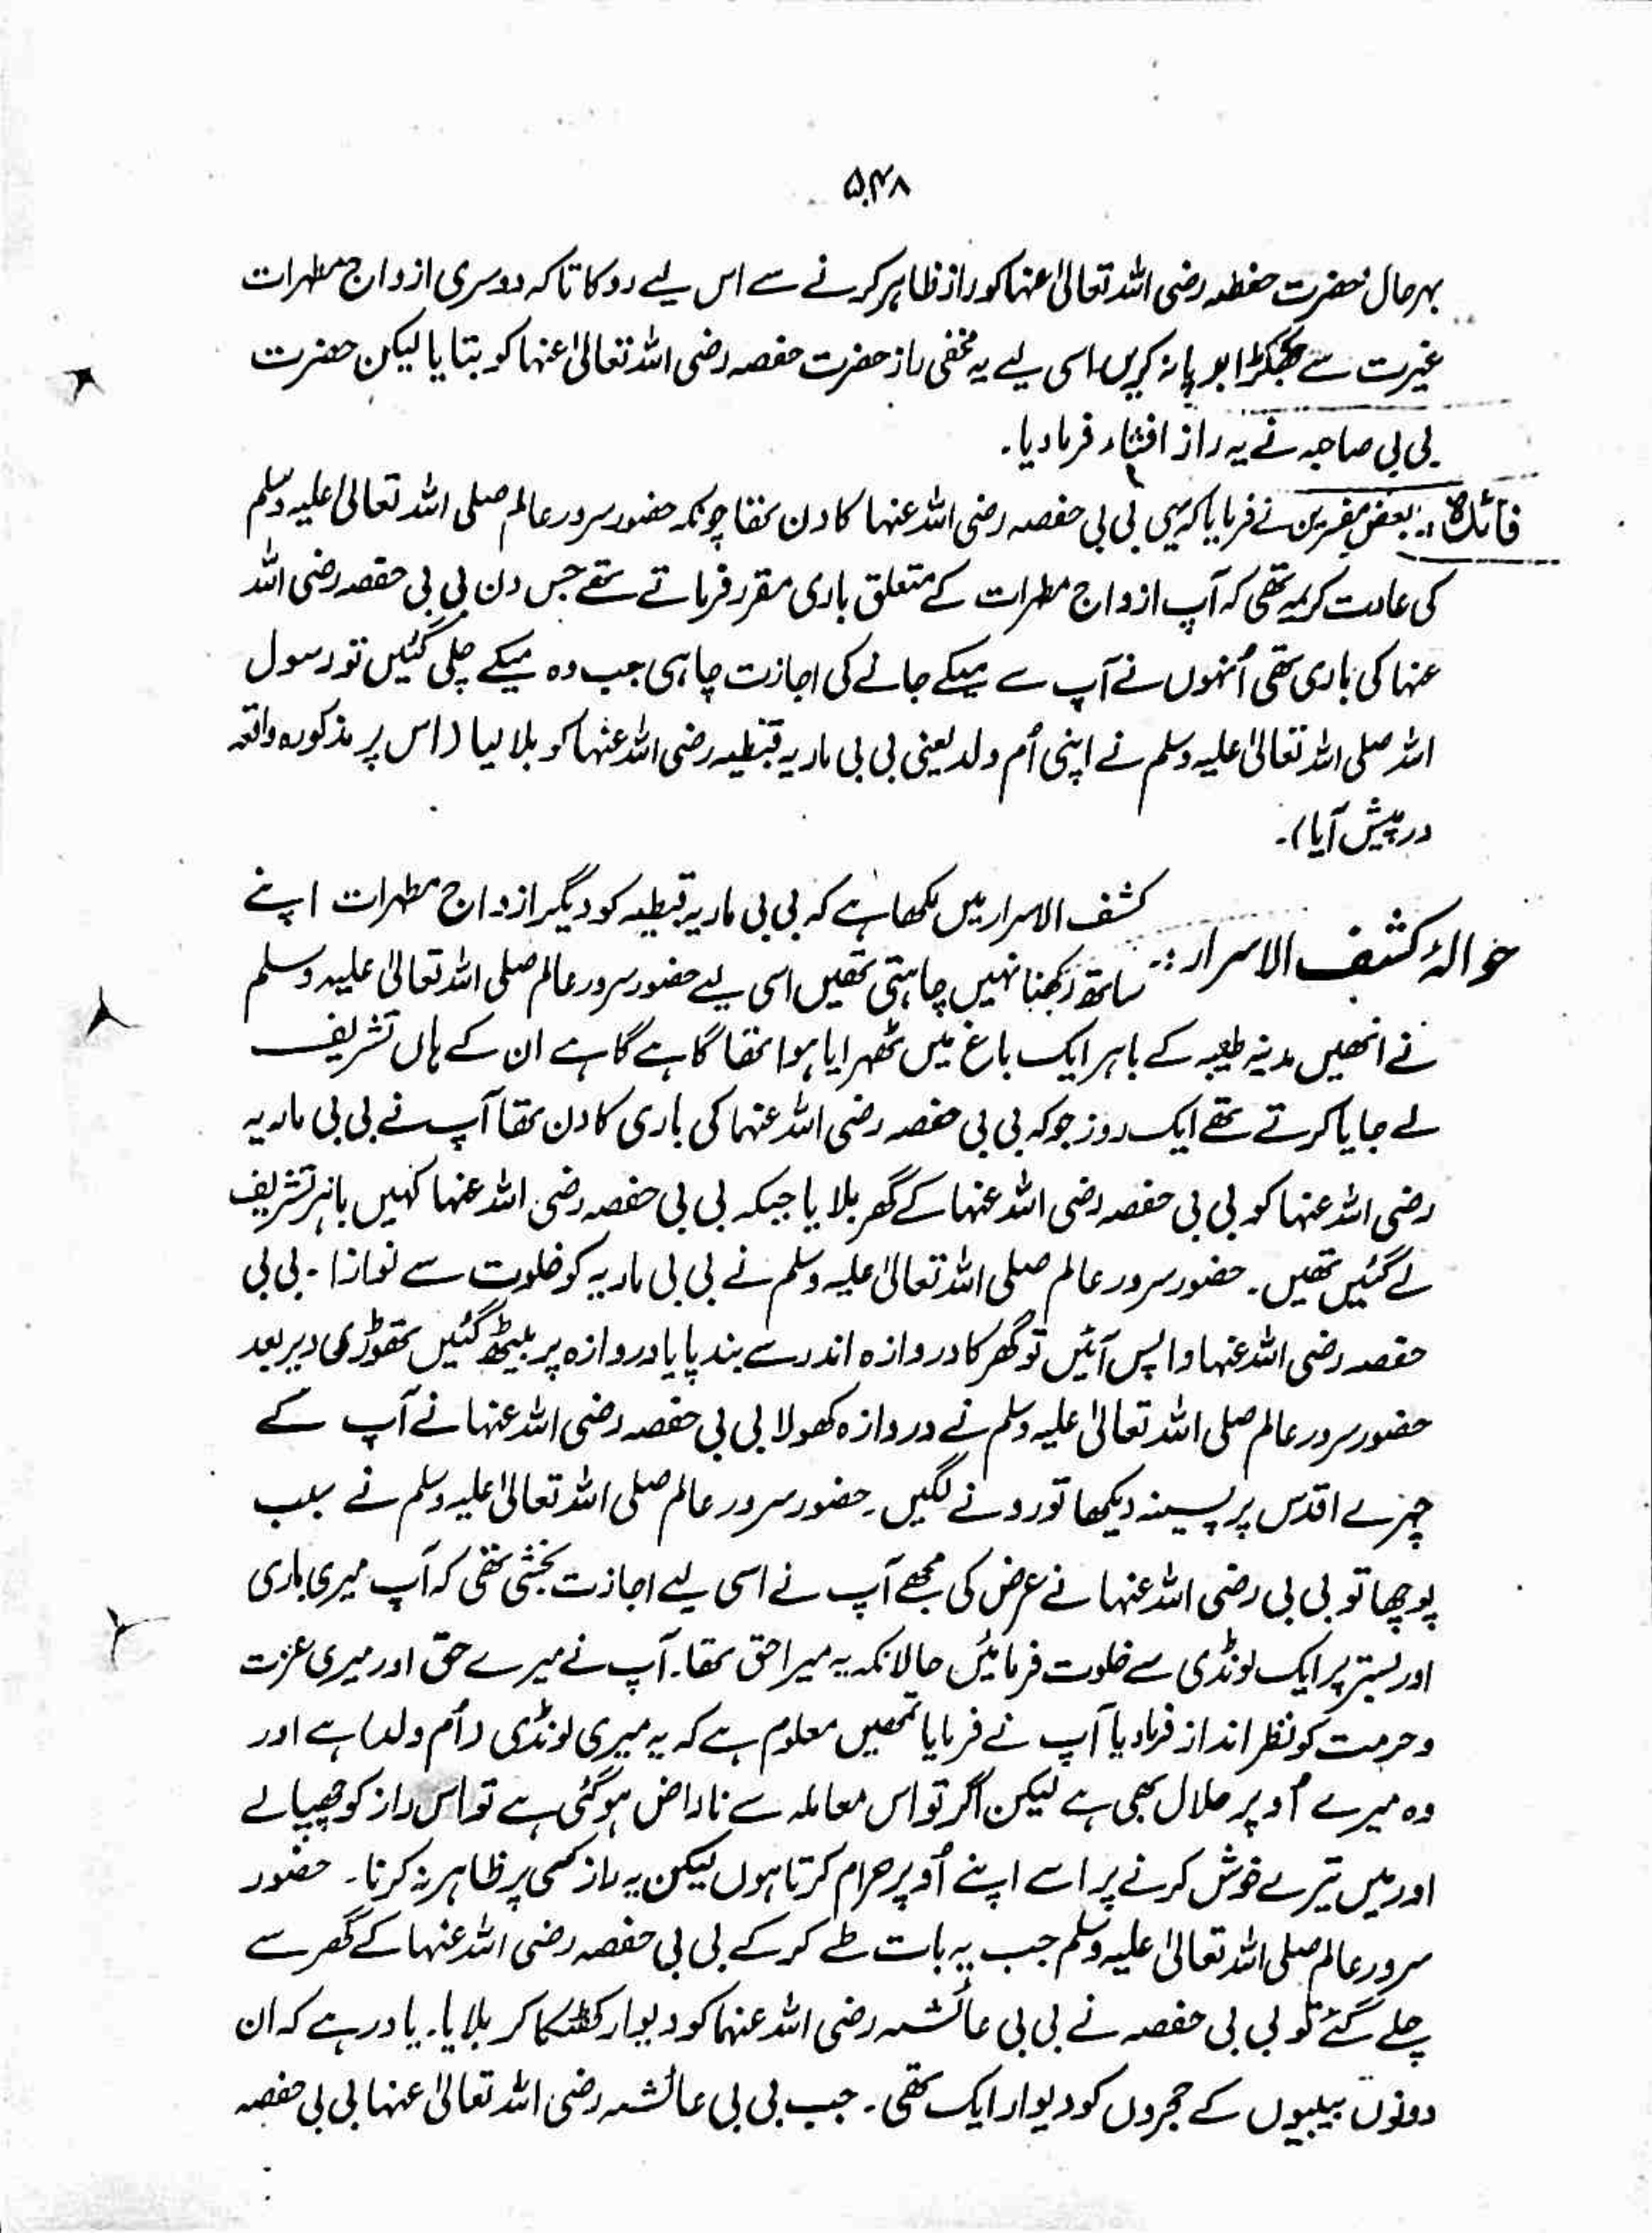 ۵۴۸
بہرحال حضرت حفطہ رضی اللہ تعالیٰ عنہا کو راز ظاہر کرنے سے اس لیے روکا تاکہ دوسری ازواج مطہرات
غیرت سے جھگڑا برپا نہ کریں اسی لیے یہ مخفی راز حضرت حفصہ رضی اللہ تعالیٰ عنہا کو بتایا لیکن حضرت
بی بی صاحبہ نے یہ راز افشاء فرما دیا۔
فائدہ: بعض مفسرین نے فرمایا کہ یہی بی بی حفصہ رضی اللہ عنہا کا دن تھا چونکہ حضور سرور عالم صلی اللہ تعالیٰ علیہ وسلم
کی عادت کریمہ تھی کہ آپ ازواج مطہرات کے متعلق باری مقرر فرماتے تھے جس دن بی بی حفصہ رضی اللہ
عنہا کی باری تھی اُنہوں نے آپ سے میکے جانے کی اجازت چاہی جب وہ میکے چلی گئیں تو رسول
اللہ صلی اللہ تعالیٰ علیہ وسلم نے اپنی اُم ولد یعنی بی بی ماریہ قبطیہ رضی اللہ عنہا کو بلا لیا (اس پر مذکورہ واقعہ
درپیش آیا)۔
حوالۂ کشف الاسرار:۔ کشف الاسرار میں لکھا ہے کہ بی بی ماریہ قبطیہ کو دیگر ازواج مطہرات اپنے
ساتھ رکھنا نہیں چاہتی تھیں اسی لیے حضور سرور عالم صلی اللہ تعالیٰ علیہ وسلم
نے انھیں مدینہ طیبہ کے باہر ایک باغ میں ٹھہرایا ہوا تھا گاہے گاہے ان کے ہاں تشریف
لے جایا کرتے تھے ایک روز جو کہ بی بی حفصہ رضی اللہ عنہا کی باری کا دن تھا آپ نے بی بی ماریہ
رضی اللہ عنہا کو بی بی حفصہ رضی اللہ عنہا کے گھر بلایا جبکہ بی بی حفصہ رضی اللہ عنہا کہیں باہر تشریف
لے گئیں تھیں۔ حضور سرور عالم صلی اللہ تعالیٰ علیہ وسلم نے بی بی ماریہ کو خلوت سے نوازا۔ بی بی
حفصہ رضی اللہ عنہا واپس آئیں تو گھر کا دروازہ اندر سے بند پایا دروازہ پر بیٹھ گئیں تھوڑی دیر بعد
حضور سرور عالم صلی اللہ تعالیٰ علیہ وسلم نے دروازہ کھولا بی بی حفصہ رضی اللہ عنہا نے آپ کے
چہرے اقدس پر پسینہ دیکھا تو رونے لگیں۔ حضور سرور عالم صلی اللہ تعالیٰ علیہ وسلم نے سبب
پوچھا تو بی بی رضی اللہ عنہا نے عرض کی مجھے آپ نے اسی لیے اجازت بخشی تھی کہ آپ میری باری
اور بستر پر ایک لونڈی سے خلوت فرمائیں حالانکہ یہ میرا حق تھا۔ آپ نے میرے حق اور میری عزت
و حرمت کو نظر انداز فرما دیا آپ نے فرمایا تمھیں معلوم ہے کہ یہ میری لونڈی (اُم ولد) ہے اور
وہ میرے اُوپر حلال بھی ہے لیکن اگر تو اس معاملہ سے ناراض ہو گئی ہے تو اس راز کو چھپالے
اور میں تیرے خوش کرنے پر اسے اپنے اُوپر حرام کرتا ہوں لیکن یہ راز کسی پر ظاہر نہ کرنا۔ حضور
سرور عالم صلی اللہ تعالیٰ علیہ وسلم جب یہ بات طے کر کے بی بی حفصہ رضی اللہ عنہا کے گھر سے
چلے گئے تو بی بی حفصہ نے بی بی عائشہ رضی اللہ عنہا کو دیوار کھٹکا کر بلایا۔ یاد رہے کہ ان
دونوں بیبیوں کے حجروں کو دیوار ایک تھی۔ جب بی بی عائشہ رضی اللہ تعالیٰ عنہا بی بی حفصہ